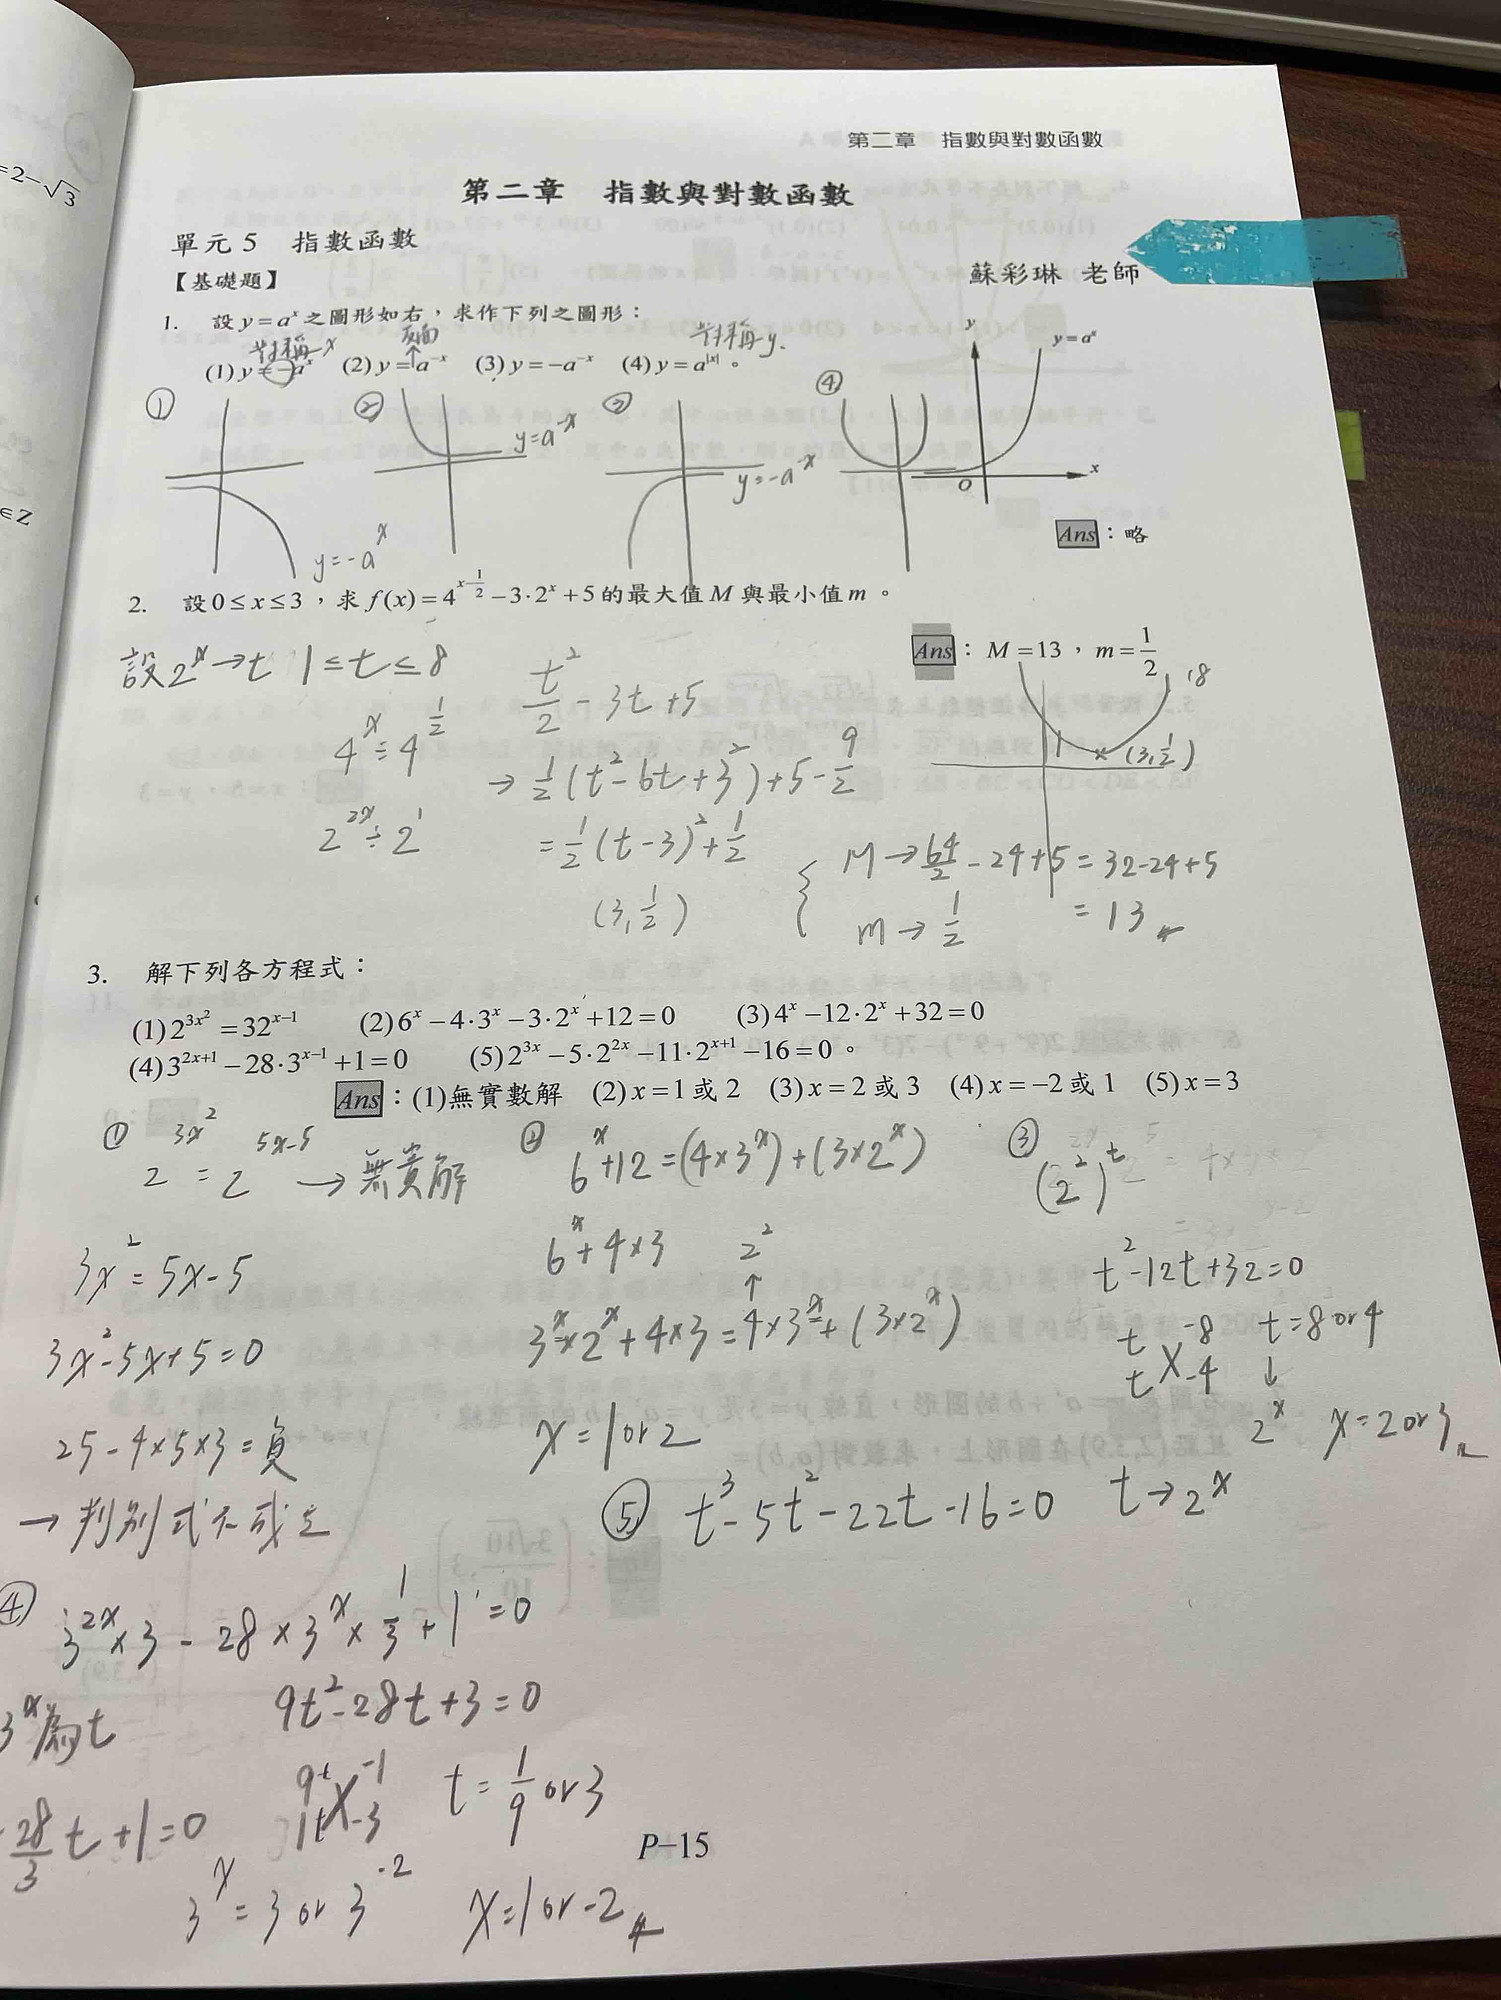 =2−√3
∈Z
第二章 指數與對數函數
第二章 指數與對數函數
單元 5 指數函數
蘇彩琳 老師
【基礎題】
1. 設 y=aˣ 之圖形如右，求作下列之圖形：
對稱 x
反面
對稱 y
(1) y=−aˣ (2) y=a⁻ˣ (3) y=−a⁻ˣ (4) y=a^|x| 。
① ② ③ ④
y=a^-x
y=-a^-x
y=-a^x
y
y=aˣ
x
O
Ans：略
2. 設 0≤x≤3，求 f(x)=4^(x−1/2)−3·2ˣ+5 的最大值 M 與最小值 m 。
Ans：M=13，m=1/2
設 2^x→t 1≤t≤8
4^x÷4^(1/2)
2^2x÷2^1
t²/2-3t+5
→1/2(t²-6t+3²)+5-9/2
=1/2(t-3)²+1/2
(3,1/2)
1 8
(3,1/2)
M→64/2-24+5=32-24+5
=13
m→1/2
3. 解下列各方程式：
(1) 2^(3x²)=32^(x−1) (2) 6ˣ−4·3ˣ−3·2ˣ+12=0 (3) 4ˣ−12·2ˣ+32=0
(4) 3^(2x+1)−28·3^(x−1)+1=0 (5) 2^(3x)−5·2^(2x)−11·2^(x+1)−16=0 。
Ans：(1)無實數解 (2) x=1 或 2 (3) x=2 或 3 (4) x=−2 或 1 (5) x=3
① 2^(3x²)=2^(5x-5) →無實解
3x²=5x-5
3x²-5x+5=0
25-4×5×3=負
→判別式不成立
② 6^x+12=(4×3^x)+(3×2^x)
6^x+4×3 2²
↑
3^x×2^x+4×3=4×3^x+(3×2^x)
x=1or2
③ (2²)^t
t²-12t+32=0
t -8 t=8or4
t -4 ↓
2^x x=2or3
⑤ t³-5t²-22t-16=0 t→2^x
④ 3^2x×3-28×3^x×1/3+1=0
3^x為t
9t²-28t+3=0
9t -1
1t -3
t=1/9 or 3
-28/3 t+1=0
3^x=3 or 3^-2 x=1or-2
P−15